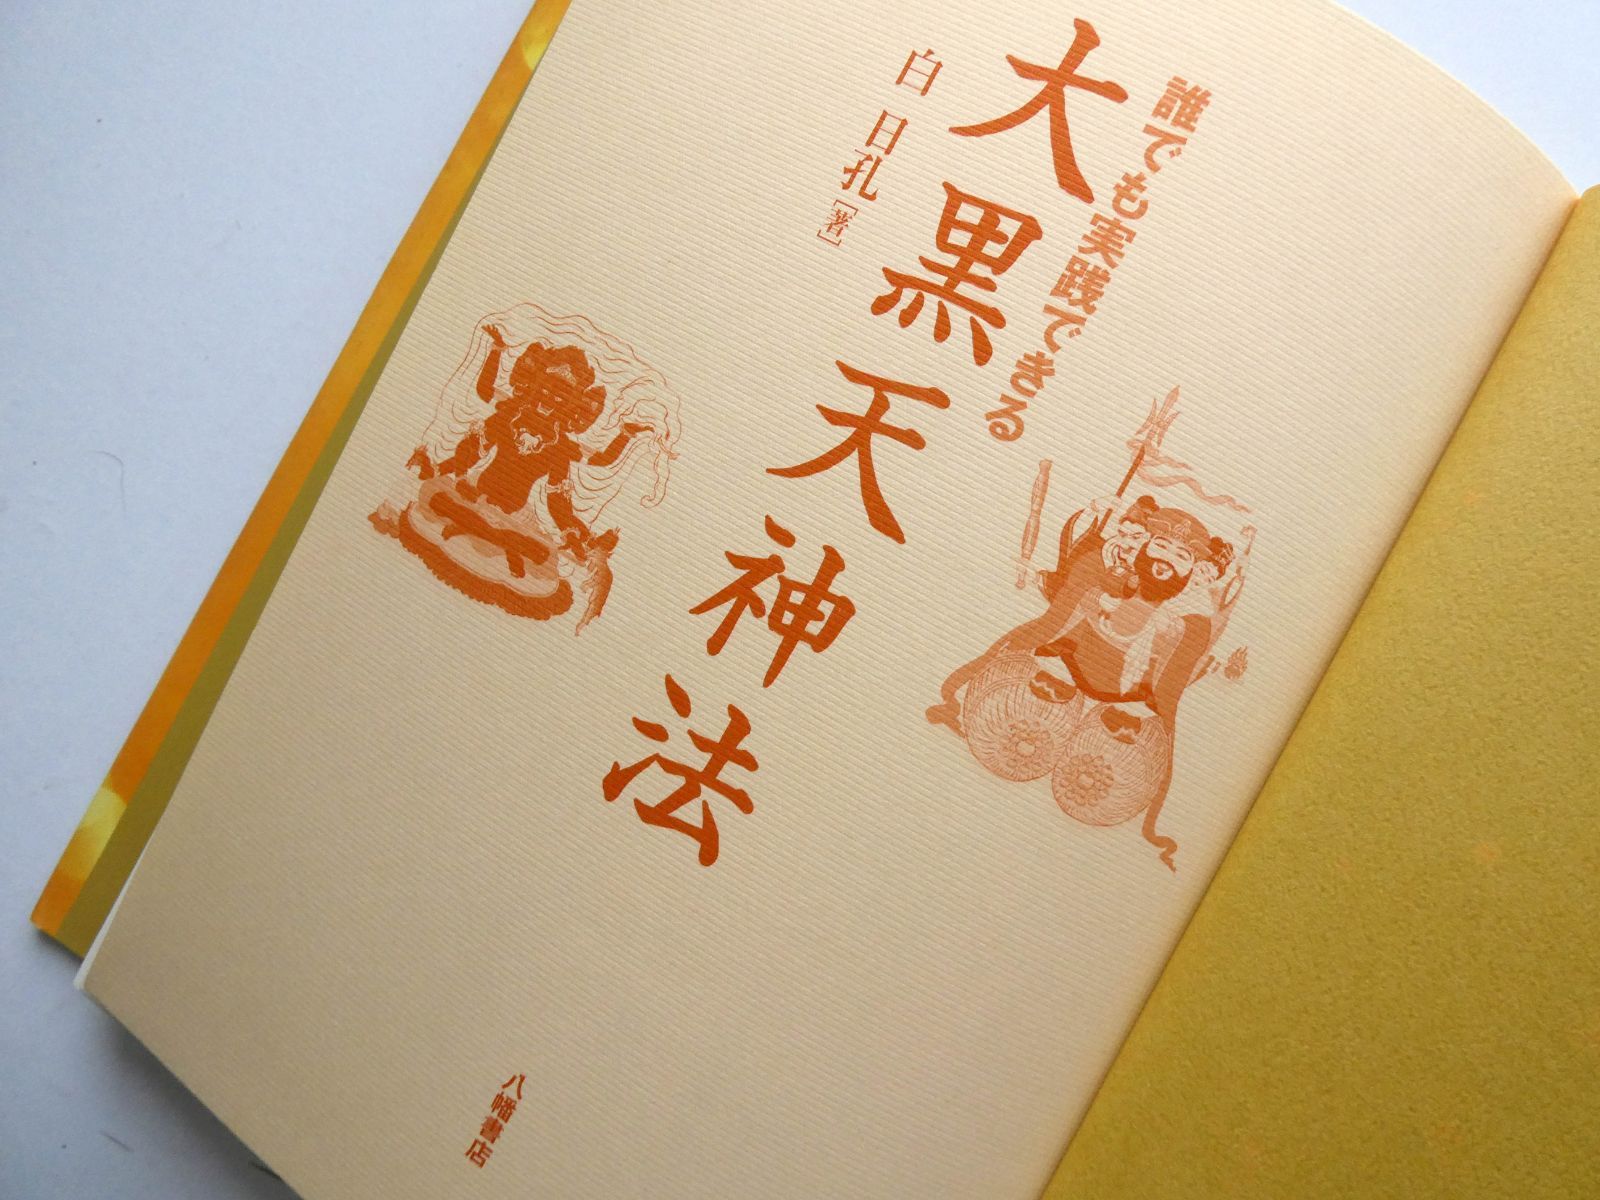 誰でも実践できる
大黒天神法
白日孔［著］
八幡書店